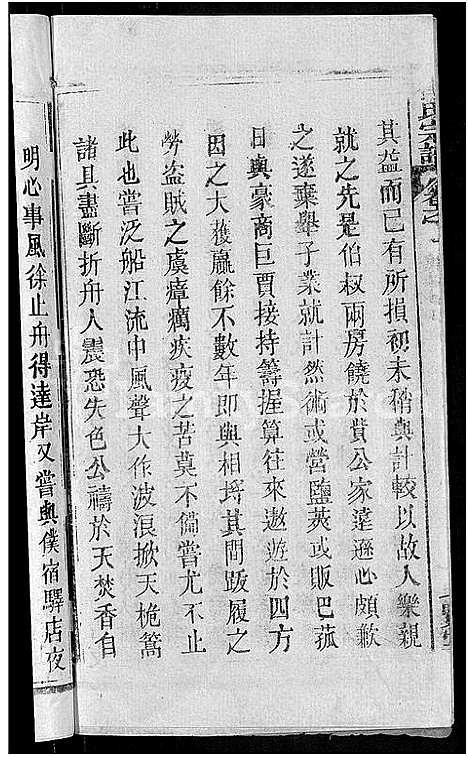 氏宗譜 卷之
其益而已有所損初未稍與計較以故人樂親
就之先是伯叔兩房饒於貲公家遠遜心頗歉
之遂棄舉子業就計然術或營鹽莢或販巴菰
日與豪商巨賈接持籌握算往來遨遊於四方
因之大獲贏餘不數年即與相埒其間跋履之
勞盜賊之虞瘴癘疾疫之苦莫不備嘗尤不止
此也嘗泛船江流中風聲大作波浪掀天桅篙
諸具盡斷折舟人震恐失色公禱於天焚香自
明心事風徐止舟得達岸又嘗與僕宿驛店夜